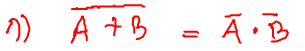 ก) $\overline{A + B} = \overline{A} \cdot \overline{B}$